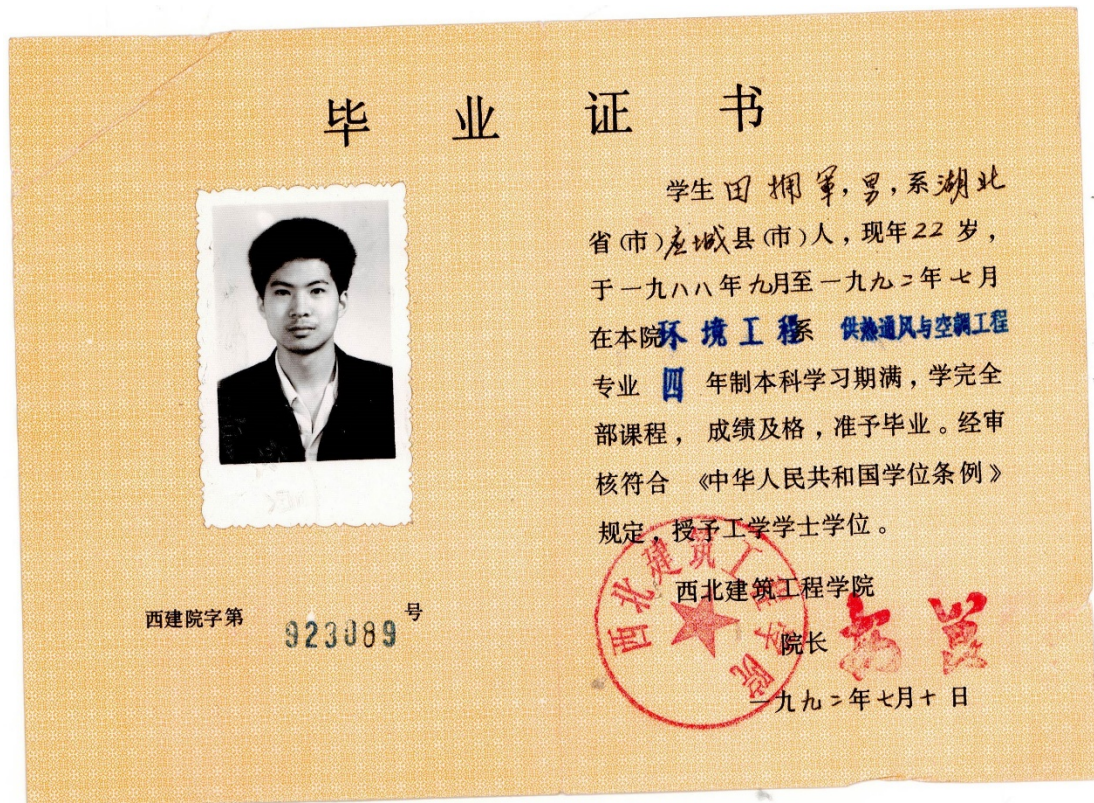 毕业证书
学生田拥军，男，系湖北
省(市)应城县(市)人，现年22岁，
于一九八八年九月至一九九二年七月
在本院环境工程系 供热通风与空调工程
专业 四 年制本科学习期满，学完全
部课程，成绩及格，准予毕业。经审
核符合 《中华人民共和国学位条例》
规定，授予工学学士学位。
西北建筑工程学院
西北建筑工程学院
院长
一九九二年七月十日
西建院字第 923089 号